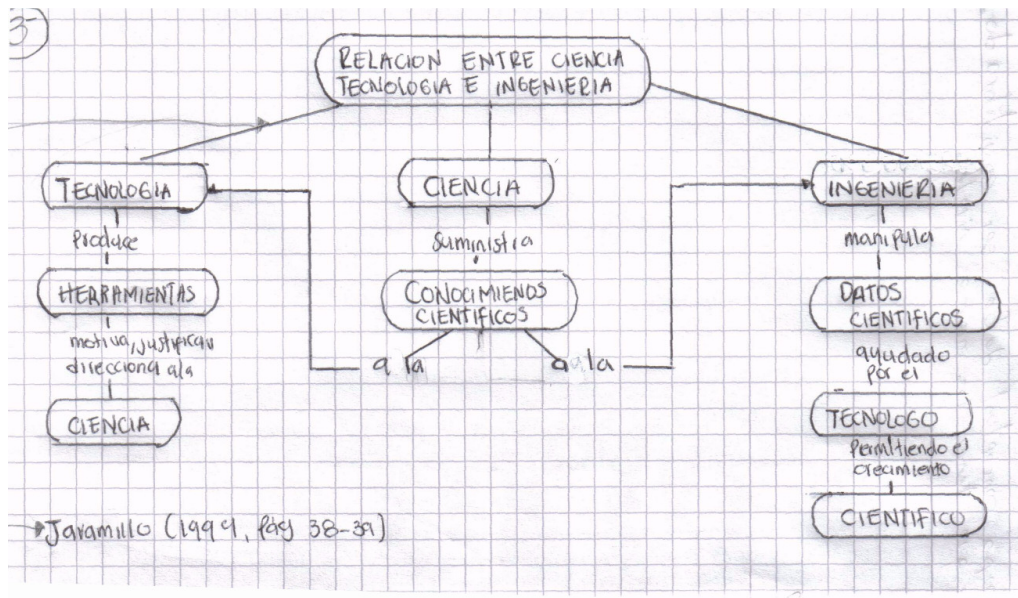 3-
RELACION ENTRE CIENCIA
TECNOLOGIA E INGENIERIA
TECNOLOGIA
produce
HERRAMIENTAS
motiva, justifica y
direcciona a la
CIENCIA
CIENCIA
suministra
CONOCIMIENOS
CIENTIFICOS
a la
a la
INGENIERIA
manipula
DATOS
CIENTIFICOS
ayudado
por el
TECNOLOGO
Permitiendo el
crecimiento
CIENTIFICO
Jaramillo (1999, pág 38-39)